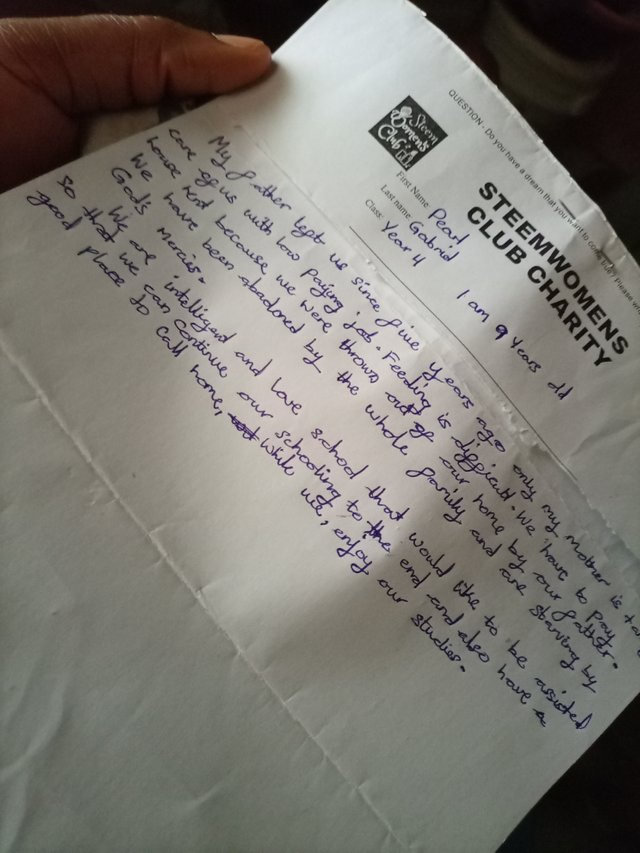 QUESTION - Do you have a dream that you want to come true? Please
STEEMWOMENS
CLUB CHARITY
Steem
Women's
Club
First Name: Pearl
Last name: Gabriel
Class: Year 4
I am 9 Years old
My father left us since five years ago only my mother is
care of us with low paying job. Feeding is difficult. We have to pay
house Rent because we were thrown out of our home by our father.
We have been abadoned by the whole family and are starving by
Gods Mercies.
We are intelligent and love school that would like to be assisted
So that we can continue our schooling to the end and also have a
good place to call home, while we, enjoy our studies.